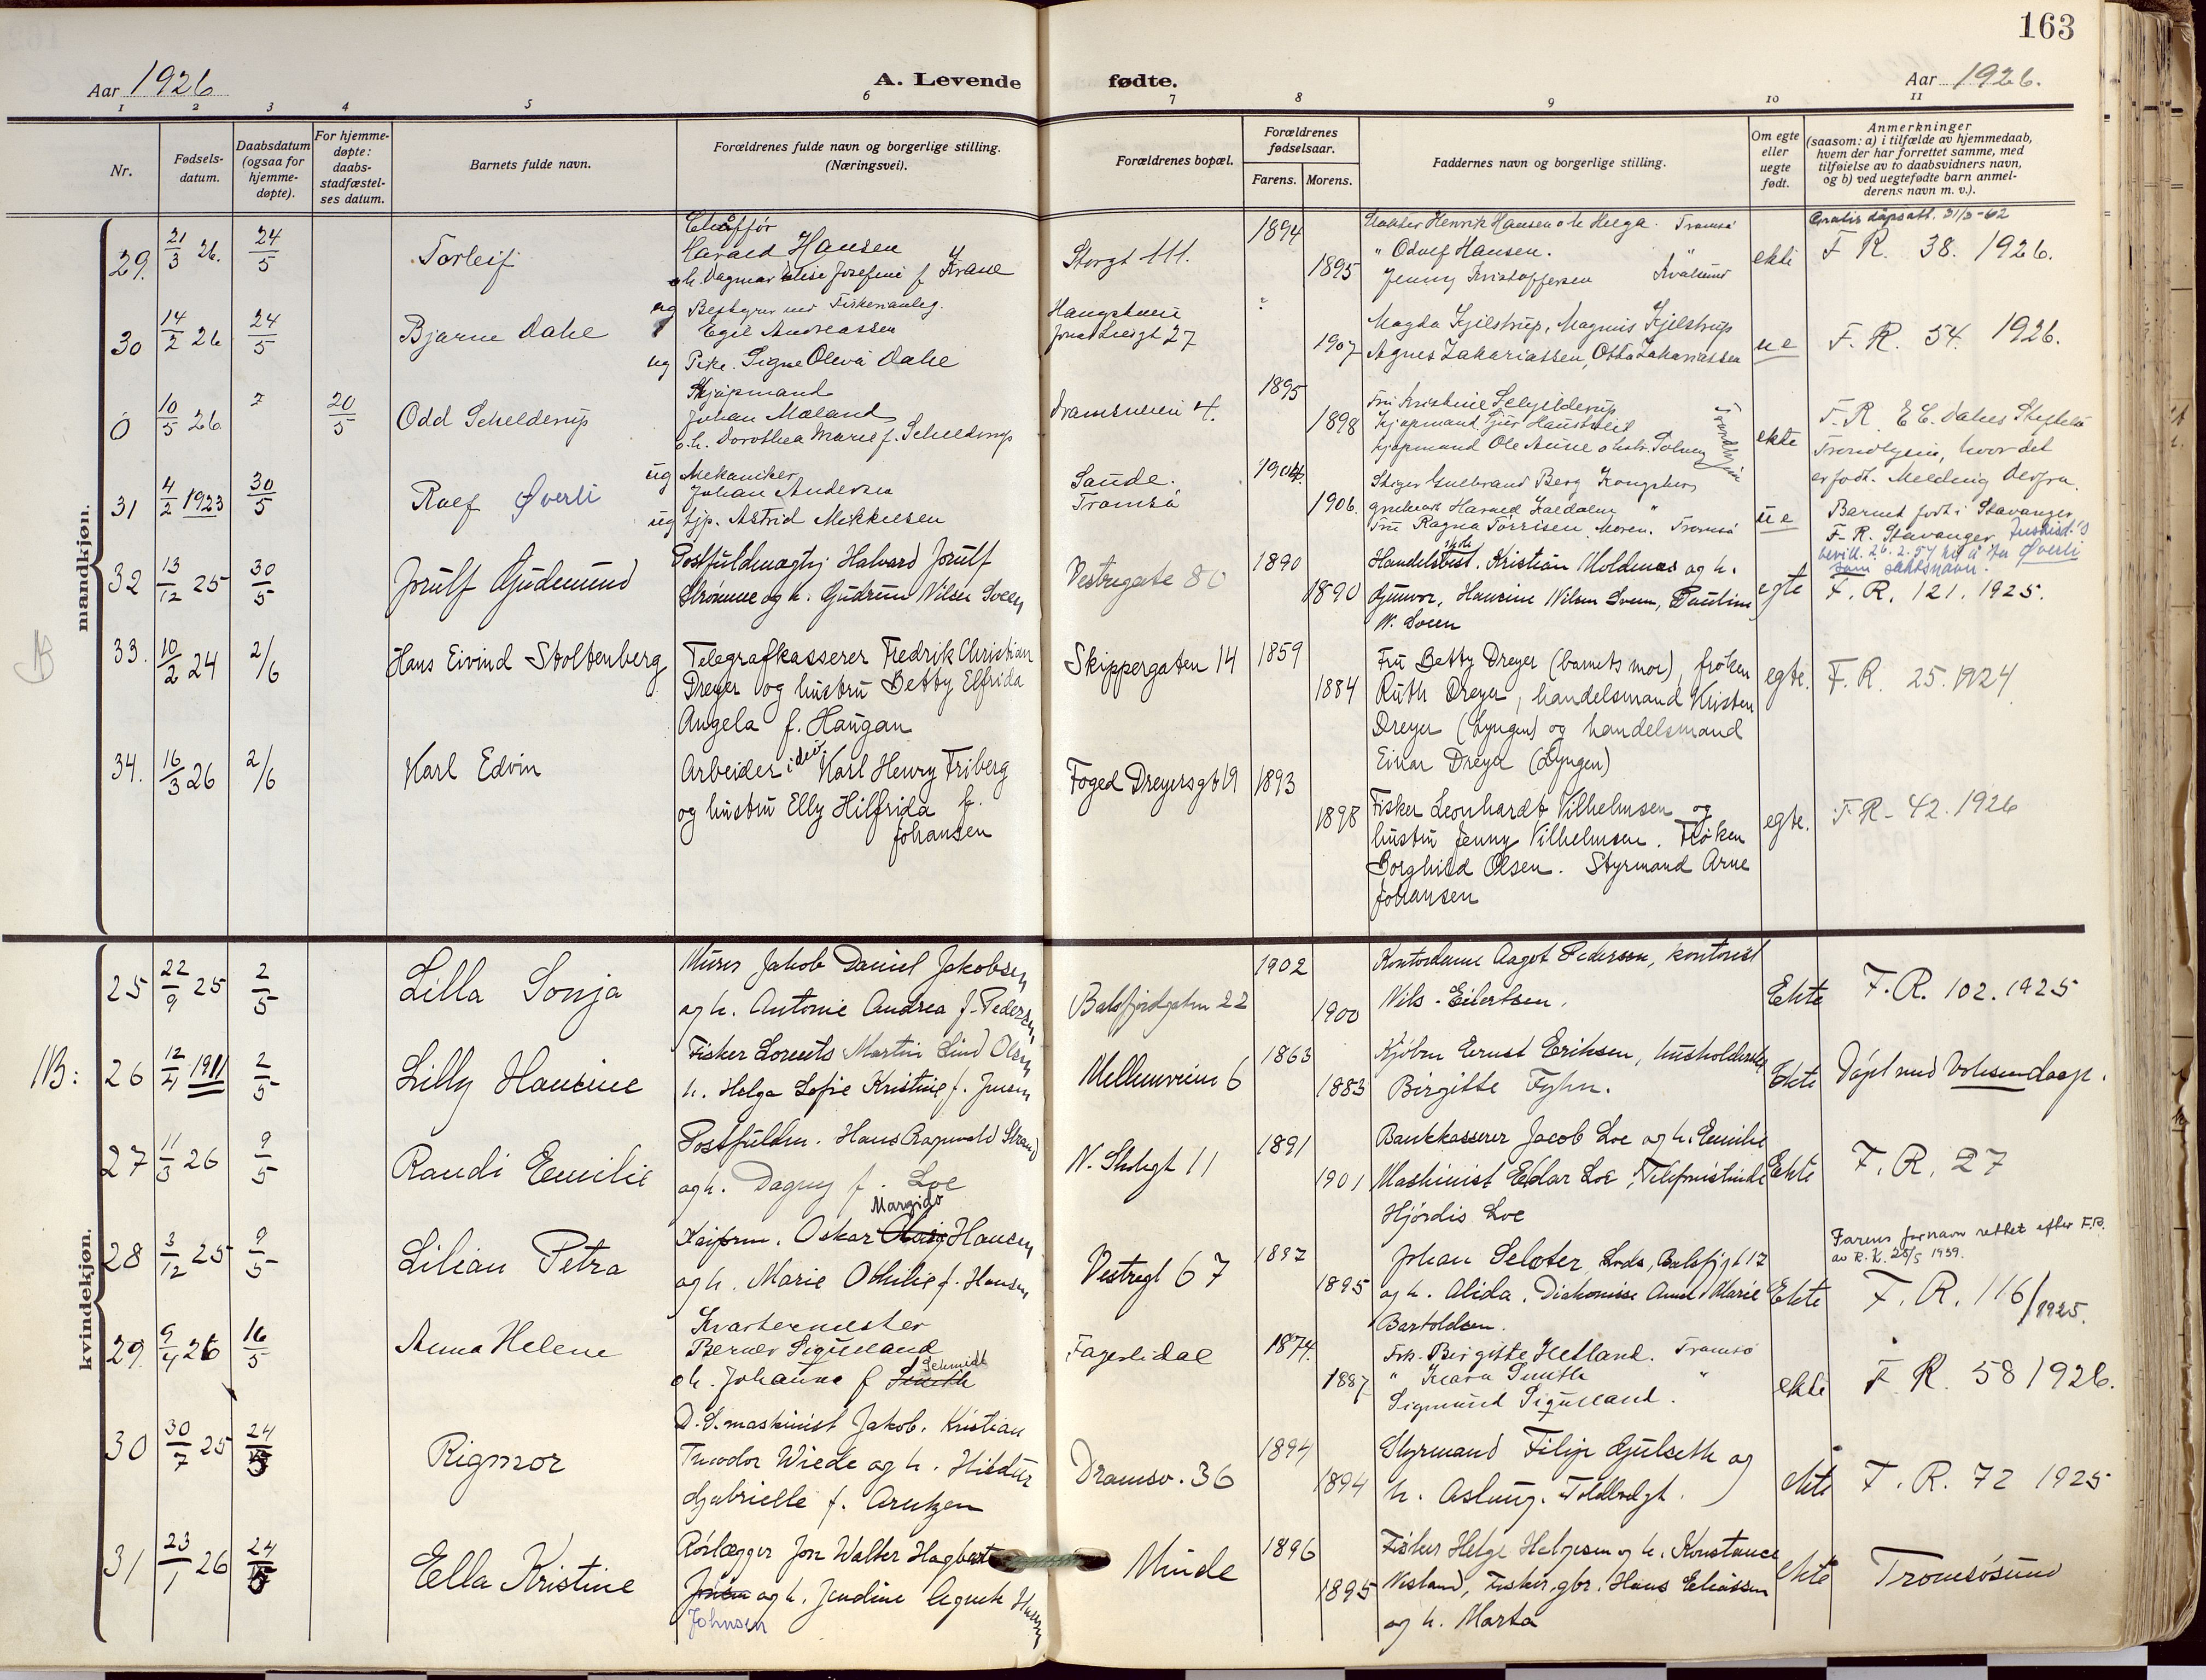 163
Aar 1926
A. Levende fødte.
Aar 1926.
1 2 3 4 5 6 7 8 9 10 11
Nr.
Fødsels-
datum.
Daabsdatum
(ogsaa for
hjemme-
døpte).
For hjemme-
døpte:
daabs-
stadfæstel-
ses datum.
Barnets fulde navn.
Forældrenes fulde navn og borgerlige stilling.
(Næringsvei).
Forældrenes bopæl.
Forældrenes
fødselsaar.
Farens. Morens.
Faddernes navn og borgerlige stilling.
Om egte
eller
uegte
født.
Anmerkninger
(saasom: a) i tilfælde av hjemmedaab,
hvem der har forrettet samme, med
tilføielse av to daabsvidners navn,
og b) ved uegtefødte barn anmel-
derens navn m. v.).
mandkjøn.
29. 21/3 26. 24/5
Torleif
Chauffør
Harald Hansen
o h. Dagmar Elise Josefine f Krane
Storgt 111.
1894
1895
Henrik Hansen o h Helga. Tromsø
" Odulf Hansen. "
Jenny Kristoffersen Kvalsund
ekte
Gratis dåpsatt. 31/3-62
F R. 38. 1926.
30 14/2 26 24/5
Bjarne Dahl
ug Bestyrer
Egil Andreassen
ug Pike. Signe Oleva Dahl
27
1907
Magda Kjilstrup, Magnus Kjilstrup
Agnes Zakariassen, Otto Zakariassen
u e
F. R. 54. 1926.
0 10/5 26 20/5
Odd Schelderup
Kjøpmand
Johan Moland
o h. Dorothea Marie f. Schelderup
Dramsveien 4.
1895
1898
Fru Kristine Schjelderup
Kjøpmand
Kjøpmand Ole Aune o hstr. Solveig
Trondhjem
ekte
F. R. E. C. Dahls Stiftelse
Trondhjem, hvor det
er født. Melding derfra.
31 4/2 1923 30/5
Rolf Øverli
ug Mekaniker
Johan Andersen
ug tjp. Astrid Mikkelsen
Sande.
Tromsø
1904.
1906.
Stiger Gulbrand Berg Kongsberg
Harald Kaldalen "
Fru Ragna Tørrisen. Moren. Tromsø
u e
Barnet født i Stavanger
F. R. Stavanger
bevill. 26.2.57 Øverli
som slektsnavn.
32 13/12 25 30/5
Jorulf Gudmund
Postfuldmægtig Halvard Jorulf
Strømme og h. Gudrun Nilsen Soleng
Vestregate 80
1890
1890
Handelsbest. Kristian Moldenæs og h.
Gunvor, Hansine Nilsen Sveen, Pauline
N. Sveen
egte
F. R. 121. 1925.
33. 10/2 24 2/6
Hans Eivind Stoltenberg
Telegrafkasserer Fredrik Christian
Dreyer og hustru Betty Elfrida
Angela f. Haugan
Skippergaten 14
1859
1884
Fru Betty Dreyer (barnets mor), frøken
Ruth Dreyer, handelsmand Kristen
Dreyer (Lyngen) og handelsmand
Einar Dreyer (Lyngen)
egte.
F. R. 25. 1924
34. 16/3 26 2/6
Karl Edvin
Arbeider Karl Henry Friberg
og hustru Elly Hilfrida f.
Johansen
Foged Dreyersgt 19
1893
1898
Fisker Leonhardt Vilhelmsen og
hustru Jenny Vilhelmsen. Frøken
Borghild Olsen. Styrmand Arne
Johansen
egte.
F. R. 42. 1926
kvindekjøn.
25 22/9 25 2/5
Lilla Sonja
Murer Jakob Daniel Jakobsen
og h. Antonie Andrea f. Pedersen
Balsfjordgaten 22
1902
1900
Kontordame Aagot Pedersen, kontorist
Nils Eilertsen.
Ekte
F. R. 102. 1925
NB: 26 12/4 1911 2/5
Lilly Hansine
Fisker Lorents Martin Lind Olsen
h. Helga Sofie Kristine f. Jensen
Mellemveien 6
1863
1883
Kjøbm Ernst Eriksen, husholderske
Birgitte Fyhn.
Ekte
Døpt med Voksendaap.
27 11/3 26 9/5
Randi Emilie
Postfuldm. Hans Ragnvald Strand
og h. Dagny f. Loe
N. Skolegt 11
1891
1901
Bankkasserer Jacob Loe og h. Emilie
Maskinist Edlar Loe, Telefonistinde
Hjørdis Loe
Ekte
F. R. 27
28 3/12 25 9/5
Lilian Petra
Margido
Oskar Hansen
og h. Marie Othilie f. Hansen
Vestregt 67
1897
1895
Johan Seloter, Balsfjgt 17
og h. Alida. Diakonisse Anna Marie
Bartoldsen.
Ekte
Farens fornavn rettet efter F.R.
av R. K. 25/5 1939.
F. R. 116/1925.
29 9/4 26 16/5
Anna Helene
Kvartermester
Berner Sigurland
o h. Johanna f Smith Schmidt
Fagerlidal
1874.
1887
Frk. Birgitte Hetland. Tromsø
" Klara Smith "
Sigmund Sigurland.
ekte
F R. 58 1926.
30 30/7 25 24/5
Rigmor
D.S. maskinist Jakob. Kristian
Theodor Wiede og h. Hildur
Gabrielle f. Arntzen
Dramsv. 36
1894
1894
Styrmand Filip Gulseth og
h. Aslaug. Toldbodgt.
ekte
F. R. 72 1925
31 23/1 26 24/5
Ella Kristine
Rørlægger Jon Walter Hagbart
Jensen og h. Jendine Agnete
Johnsen
Minde
1896
1895
Fisker Helge Helgesen og h. Konstance
Nesland, Fisker, gbr. Hans Eliassen
og h. Marta
ekte
Tromsøsund